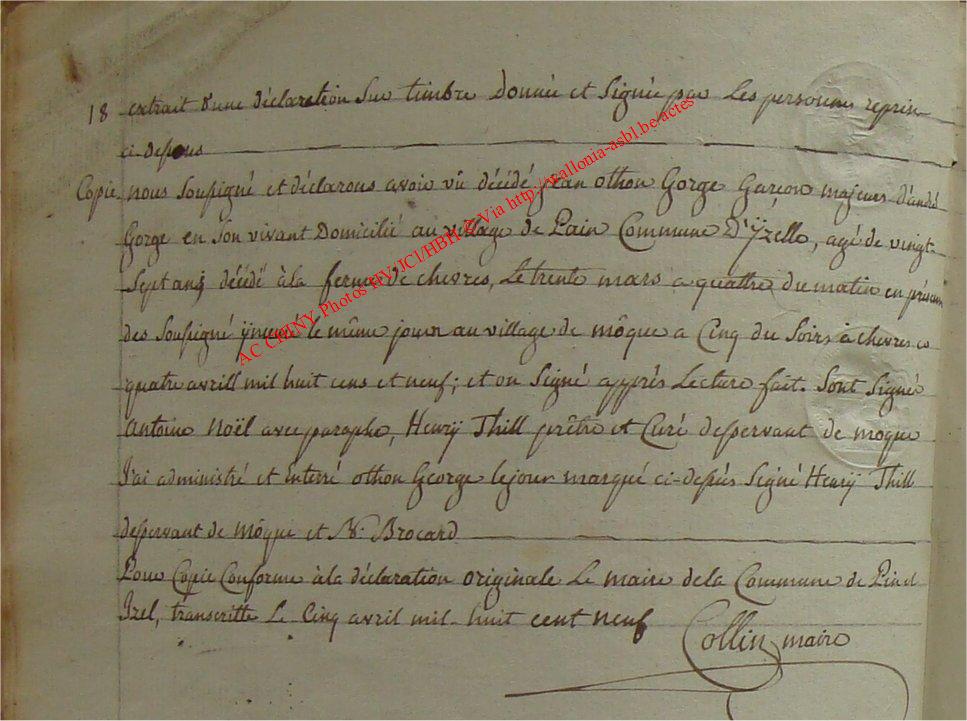 18 extrait d'une déclaration Sur timbre Donnée et Signée par Les personne reprin
ci-dessus
Copie nous Soussigné et déclarons avoir vû décédé jean othon Gorge Garçon majeurs d'andré
Gorge en Son vivant Domicilié au village de Pain Commune D'Ÿzelle, agé de vingt-
Sept ans décédé à la ferme de chevres, Le trente mars a quattre du matin en présence
des Soussigné ÿnterré le même jour au village de môque a Cinq du Soirs à chevres ce
quatre avrill mil huit cens et neuf; et on Signé apprès Lecture fait. Sont Signé
Antoine Noël avec paraphe, Henrÿ Thill prêtre et Curé desservant de moque
J'ai administré et Enterré othon George le jour marqué ci-dessus Signé Henrÿ Thill
desservant de Môque et N. Brocard
Pour Copie Conforme à la déclaration originale Le maire de la Commune de Pin et
Izel, transcritte Le Cinq avril mil-huit cent neuf
Collin maire
AC CHINY Photos HV/JCl/HBH © Via http://wallonia-asbl.be actes